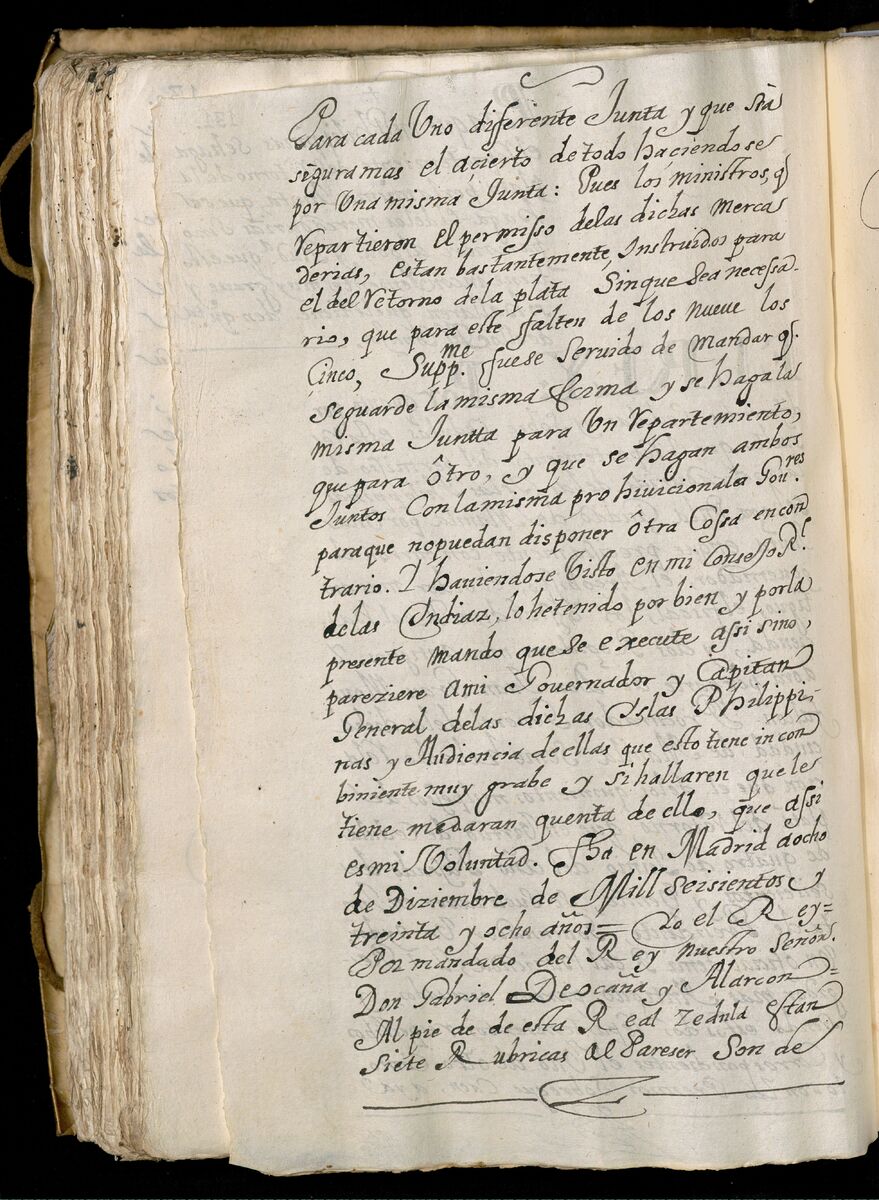 Para cada Uno diferente Junta y que sea
sigura mas el açierto de todo haciendose
por Una misma Junta: Pues los ministros, q
repartieron el permisso delas dichas merca
derias, estan bastantemente, Instruidos para
el del retorno de la plata Sin que Sea necessa-
rio, que para este falten de los nueve los
Cinco, Supp.me fuese servido de mandar q.
Seguarde la misma forma y se haga la
misma Juntta para Un repartemiento,
que para ôtro, y que se hagan ambos
Juntos Con la misma prohivicional a Gou.res
para que no puedan disponer ôtra Cossa en con
trario. Y haviendose Visto en mi Consejo R.l
delas Yndiaz, lo he tenido por bien y por la
presente mando que se execute assi sino,
pareziere ami Governador y Capitan
General delas dichas Yslas Philippi-
nas y Audiencia de ellas que esto tiene incon
biniente muy grabe y si hallaren que le
tiene me daran quenta de ello, que assi
es mi Voluntad. fha en Madrid a ocho
de Diziembre de Mill seisientos y
treinta y ocho años = Yo el Rey =
Por mandado del Rey nuestro Señor.
Don Gabriel De ocaña y Alarcon =
Al pie de de esta Real Zedula estan
siete Rubricas al Pareser Son de